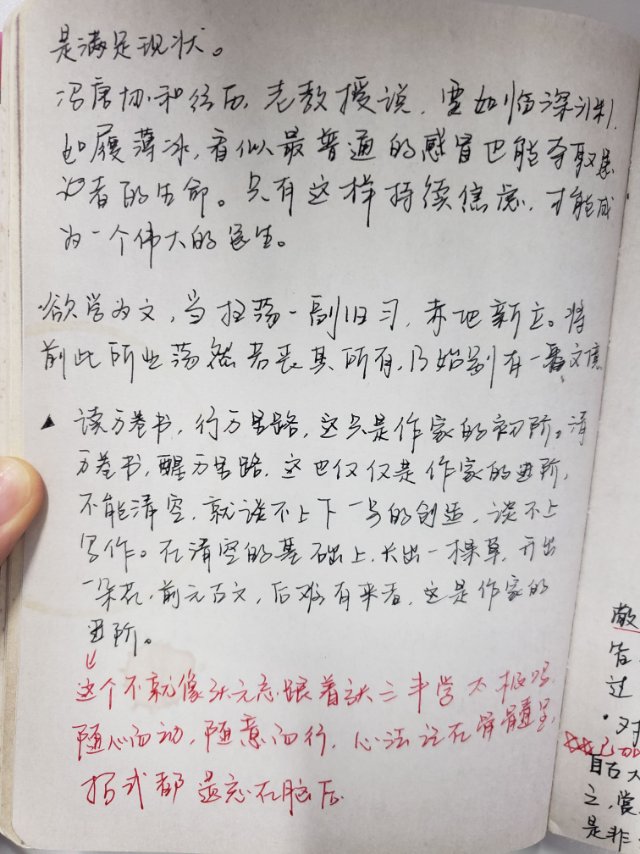 是满足现状。
冯唐协和行医，老教授说，要如临深渊，
如履薄冰，看似最普通的感冒也能夺取患
者的生命。只有这样持续焦虑，才能成
为一个伟大的医生。
欲学为文，当扫荡一副旧习，赤地新立。将
前此所业荡然若丧其所有，乃始别有一番文境
▲ 读万卷书，行万里路，这只是作家的初阶。清
万卷书，醒万里路，这也仅仅是作家的进阶，
不能清空，就谈不上下一步的创造，谈不上
写作。在清空的基础上，长出一棵草，开出
一朵花，前无古文，后难有来者，这是作家的
进阶。
这个不就像张无忌跟着张三丰学太极吗
随心而动，随意而行，心法记在骨髓里，
招式都遗忘在脑后
敵
告
过
·对
自古大
之，赏
是非